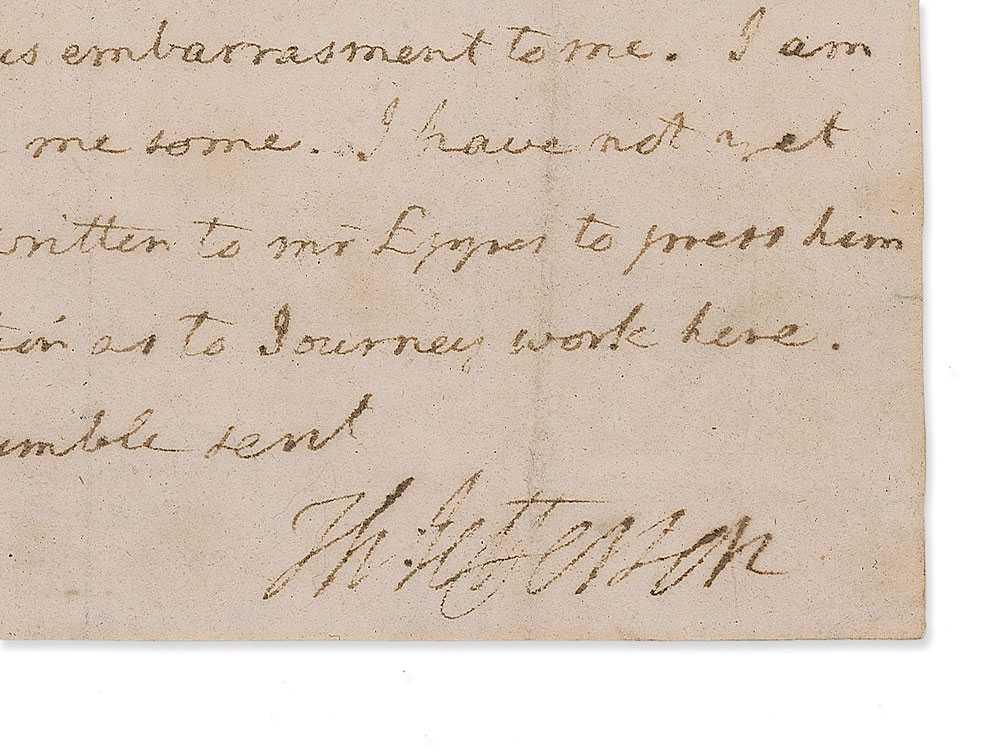 us embarrasment to me. I am
me some. I have not yet
written to mr Eppes to press him
tion as to Journey work here.
umble servt
Th: Jefferson